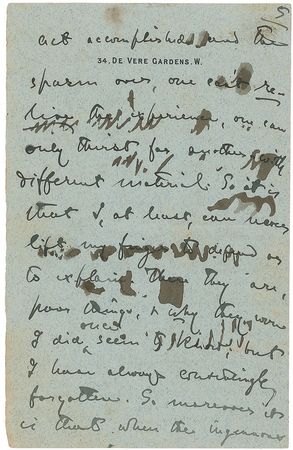 act accomplished and the
34, DE VERE GARDENS. W.
spasm over, one can't re-
live the experience, one can
only thirst for another with
different material. So it is
that I, at least, can never
lift my finger to defend or
to explain. There they are,
poor things, & why they were
once
I did seem to know, but
I have always convincingly
forgotten. So moreover it
is that when the ingenuous